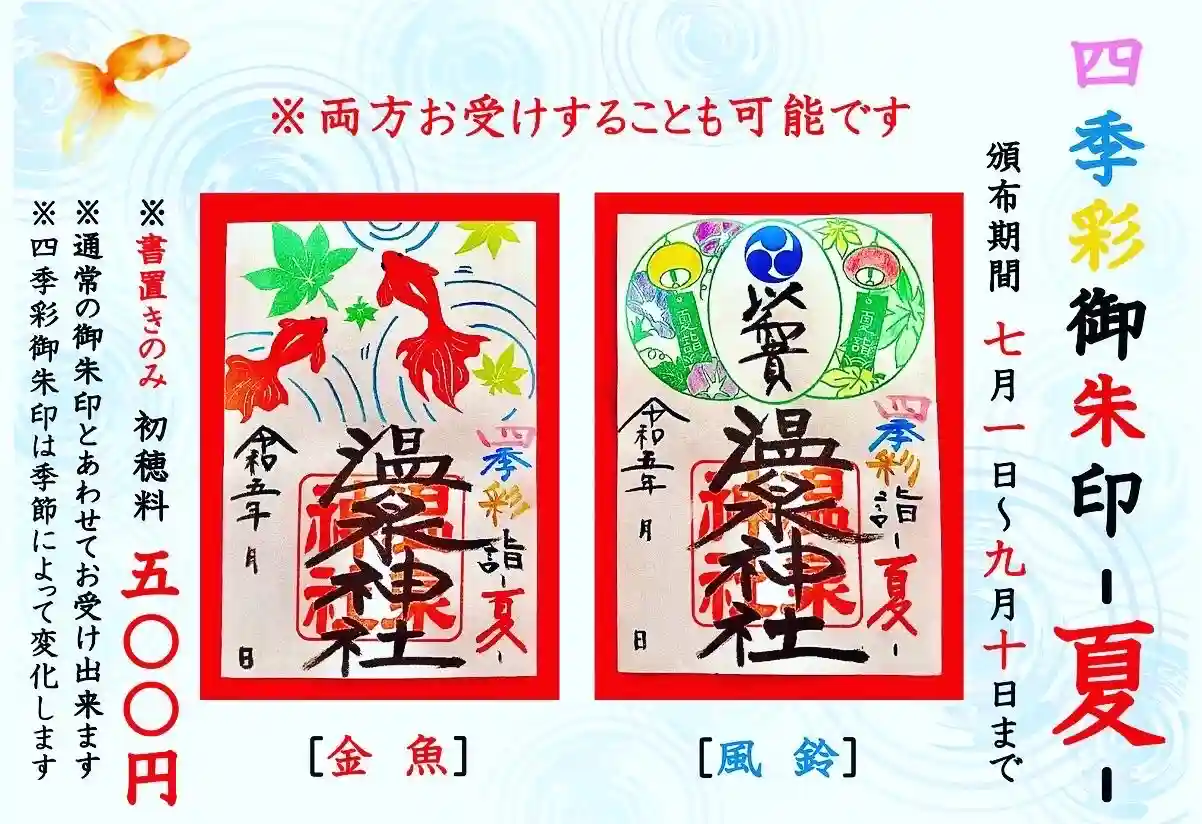 四季彩御朱印-夏-
頒布期間 七月一日～九月十日まで
※両方お受けすることも可能です
四季彩詣-夏-
温泉神社
令和五年 月 日
夏詣
夏詣
[風 鈴]
四季彩詣-夏-
温泉神社
令和五年 月 日
[金 魚]
※書置きのみ 初穂料 五〇〇円
※通常の御朱印とあわせてお受け出来ます
※四季彩御朱印は季節によって変化します